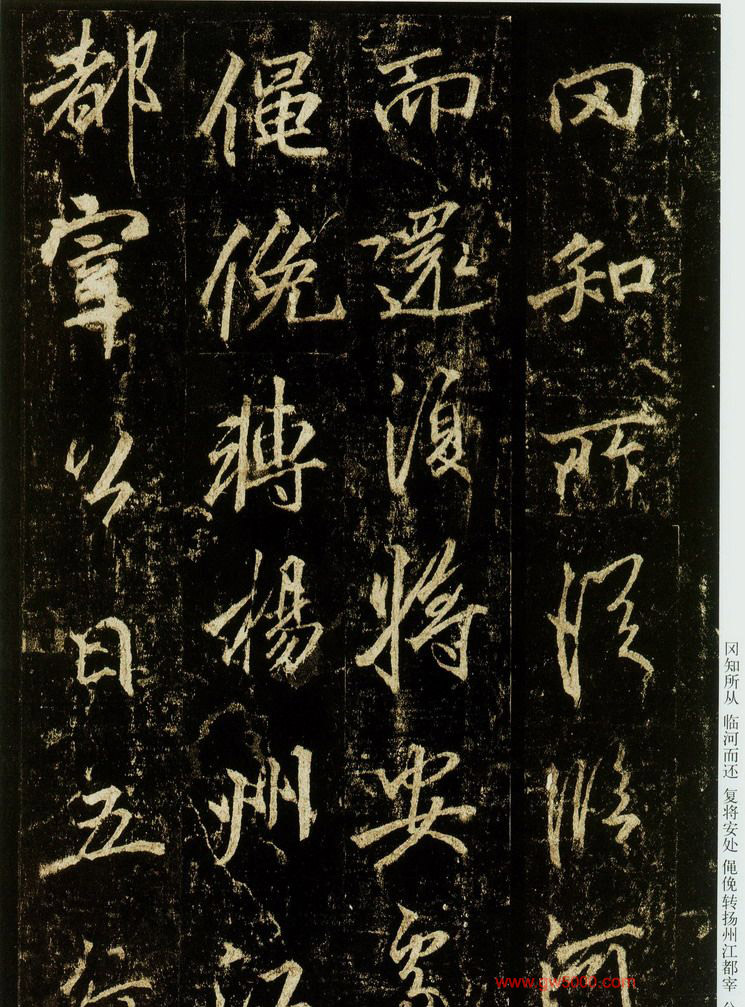 罔知所從臨河
而還復將安處
僶俛轉楊州江
都宰公日五行
冈知所从 临河而还 复将安处 僶俛转扬州江都宰
www.gw5000.com